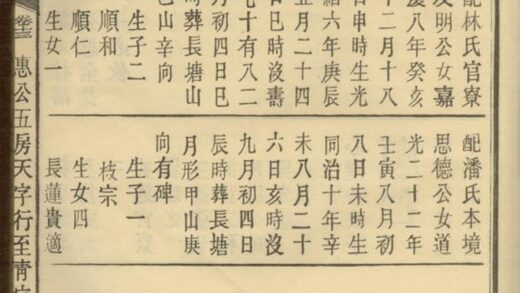 配林氏官寮
明公女嘉
慶八年癸亥
二月十八
日申時生光
緒六年庚辰
五月二十四
日巳時沒壽
七十有八二
月初四日巳
時葬長塘山
山辛向
生子二
順和
順仁
生女一
配潘氏本境
思德公女道
光二十二年
壬寅八月初
八日未時生
同治十年辛
未八月二十
六日亥時沒
九月初四日
辰時葬長塘
月形甲山庚
向有碑
生子一
枝宗
生女四
長蓮貴適
惠公五房天字行至靑